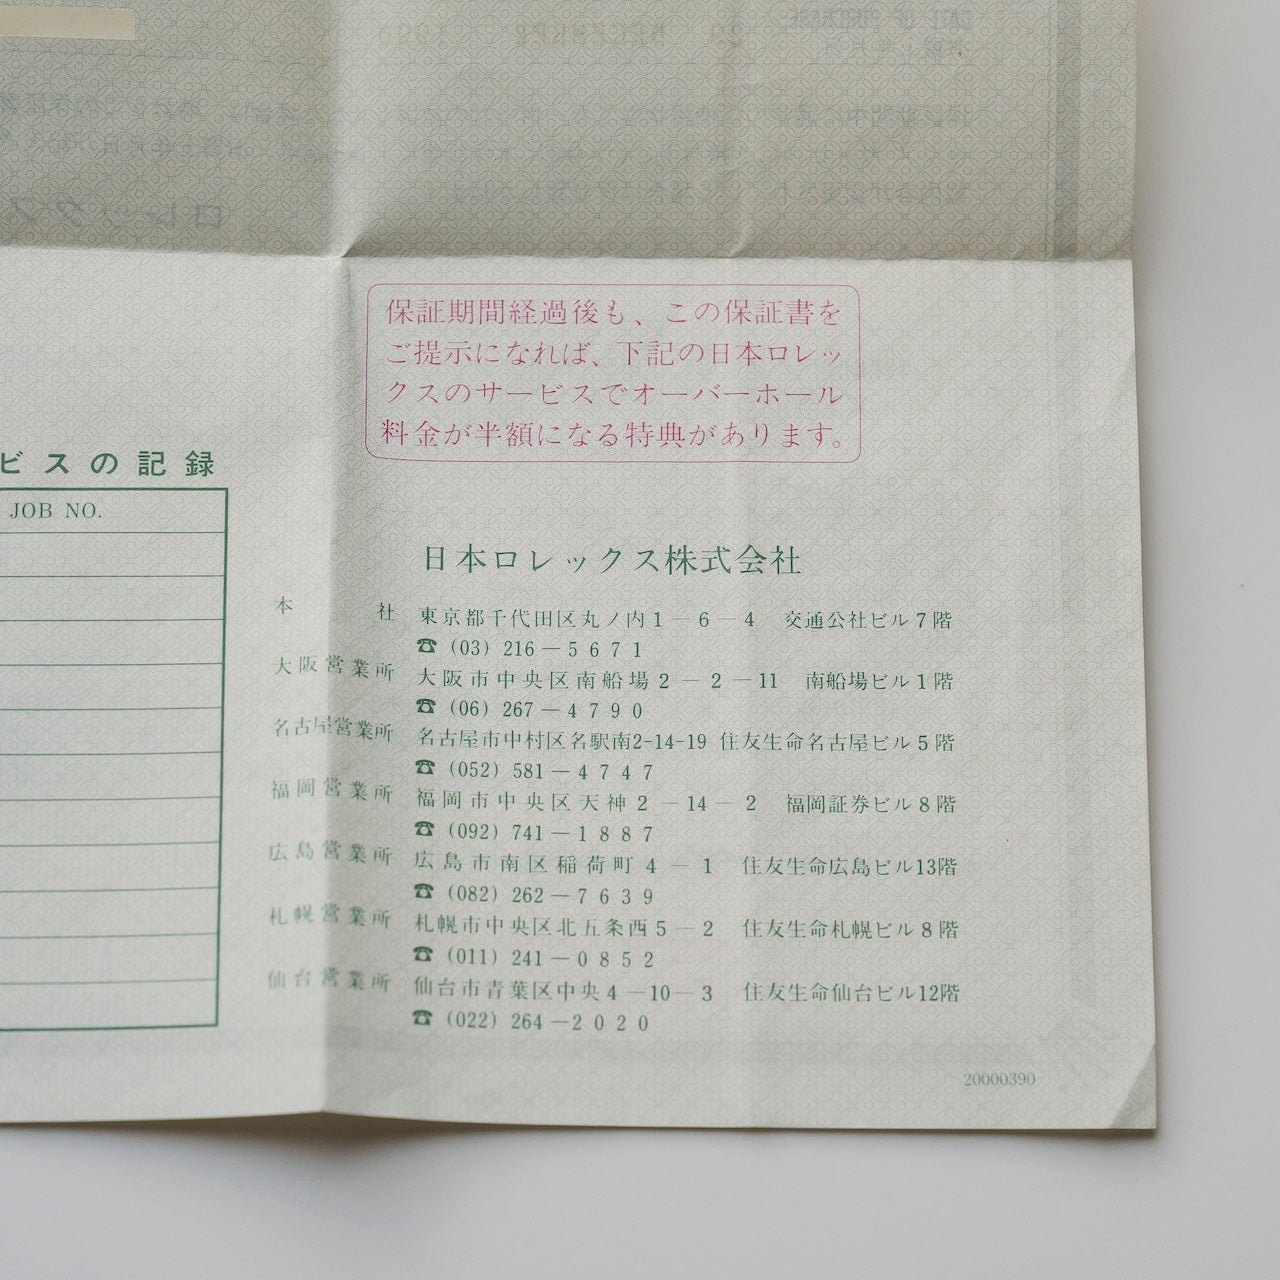 保証期間経過後も、この保証書を
ご提示になれば、下記の日本ロレッ
クスのサービスでオーバーホール
料金が半額になる特典があります。
ビスの記録
JOB NO.
日本ロレックス株式会社
本社 東京都千代田区丸ノ内1－6－4 交通公社ビル7階
☎ (03) 216－5671
大阪営業所 大阪市中央区南船場2－2－11 南船場ビル1階
☎ (06) 267－4790
名古屋営業所 名古屋市中村区名駅南2-14-19 住友生命名古屋ビル5階
☎ (052) 581－4747
福岡営業所 福岡市中央区天神2－14－2 福岡証券ビル8階
☎ (092) 741－1887
広島営業所 広島市南区稲荷町4－1 住友生命広島ビル13階
☎ (082) 262－7639
札幌営業所 札幌市中央区北五条西5－2 住友生命札幌ビル8階
☎ (011) 241－0852
仙台営業所 仙台市青葉区中央4－10－3 住友生命仙台ビル12階
☎ (022) 264－2020
20000390